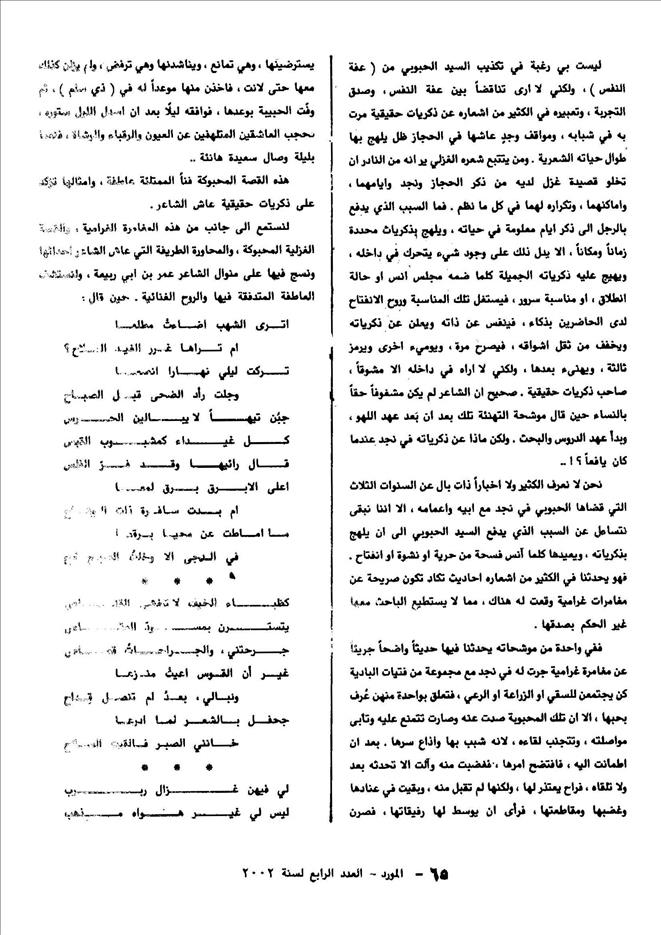 ليست بي رغبة في تكذيب السيد الحبوبي من ( عفة
النفس ) ، ولكني لا ارى تناقضاً بين عفة النفس ، وصدق
التجربة ، وتعبيره في الكثير من اشعاره عن ذكريات حقيقية مرت
به في شبابه ، ومواقف وجدٍ عاشها في الحجاز ظل يلهج بها
طوال حياته الشعرية . ومن يتتبع شعره الغزلي ير انه من النادر ان
تخلو قصيدة غزل لديه من ذكر الحجاز ونجد وايامهما ،
واماكنهما ، وتكراره لهما في كل ما نظم . فما السبب الذي يدفع
بالرجل الى ذكر ايام معلومة في حياته ، ويلهج بذكرياتٍ محددة
زماناً ومكاناً ، الا يدل ذلك على وجود شيء يتحرك في داخله ،
ويهيج عليه ذكرياته الجميلة كلما ضمه مجلس أنس او حالة
انطلاق ، او مناسبة سرور ، فيستغل تلك المناسبة وروح الانفتاح
لدى الحاضرين بذكاء ، فينفس عن ذاته ويعلن عن ذكرياته
ويخفف من ثقل اشواقه ، فيصرح مرة ، ويوميء اخرى ويرمز
ثالثة ، ويهنيء بعدها ، ولكني لا اراه في داخله الا مشوقاً ،
صاحب ذكريات حقيقية . صحيح ان الشاعر لم يكن مشغوفاً حقاً
بالنساء حين قال موشحة التهنئة تلك بعد ان بَعد عهد اللهو ،
وبدأ عهد الدروس والبحث . ولكن ماذا عن ذكرياته في نجد عندما
كان يافعاً ؟ ! ..
نحن لا نعرف الكثير ولا اخباراً ذات بال عن السنوات الثلاث
التي قضاها الحبوبي في نجد مع ابيه واعمامه ، الا اننا نبقى
نتساءل عن السبب الذي يدفع السيد الحبوبي الى ان يلهج
بذكرياته ، ويعيدها كلما آنس فسحة من حرية او نشوة او انفتاح .
فهو يحدثنا في الكثير من اشعاره احاديث تكاد تكون صريحة عن
مغامرات غرامية وقعت له هناك ، مما لا يستطيع الباحث معها
غير الحكم بصدقها .
ففي واحدة من موشحاته يحدثنا فيها حديثاً واضحاً جريئاً
عن مغامرة غرامية جرت له في نجد مع مجموعة من فتيات البادية
كن يجتمعن للسقي او الزراعة او الرعي ، فتعلق بواحدة منهن عُرف
بحبها ، الا ان تلك المحبوبة صدت عنه وصارت تتمنع عليه وتابى
مواصلته ، وتتجنب لقاءه ، لانه شبب بها وأذاع سرها . بعد ان
اطمانت اليه ، فافتضح امرها ، فغضبت منه وآلت الا تحدثه بعد
ولا تلقاه ، فراح يعتذر لها ، ولكنها لم تقبل منه ، وبقيت في عنادها
وغضبها ومقاطعتها ، فرأى ان يوسط لها رفيقاتها ، فصرن
يسترضينها ، وهي تمانع ، ويناشدنها وهي ترفض ، ولم يزلن كذلك
معها حتى لانت ، فاخذن منها موعداً له في ( ذي سلم ) ، ثم
وفّت الحبيبة بوعدها ، فوافقه ليلًا بعد ان اسدل الليل ستوره ،
بحجب العاشقين المتلهفين عن العيون والرقباء والوشاة ،
بليلة وصال سعيدة هانئة ..
هذه القصة المحبوكة فناً الممتلئة عاطفة ، وامثالها تؤكد
على ذكريات حقيقية عاش الشاعر .
لنستمع الى جانب من هذه المغامرة الغرامية ، والقصة
الغزلية المحبوكة ، والمحاورة الطريفة التي عاش الشاعر احداثها
ونسج فيها على منوال الشاعر عمر بن ابي ربيعة ،
العاطفة المتدفقة فيها والروح الغنائية . حين قال :
اترى الشهب اضاءتْ مطلعا
ام تراها غرر الغيد الصباح ؟
تركت ليلي نهارا
وجلت رأد الضحى قبل الصباح
جبْن تيهاً لا يبالين الحرس
كل غيداء كمشبوب القبس
قال رائيها وقد
اعلى الابرق برق لمعا
ام بدت سافرة ذات
ما اماطت عن محيا برقعا
في الدجى الا وخلتُ
* * *
كظباء الخيف
يتسترن
جرحتني ، والجراحات
غير أن القوس اعيتْ منزعا
ونبالي ، بعدُ لم تتصل
جحفل بالشعر لما ادرعا
خانني الصبر فالقيت السلاح
* * *
لي فيهن غزال ربرب
ليس لي غير هواه مذهب
٦٥ - المورد - العدد الرابع لسنة ٢٠٠٢